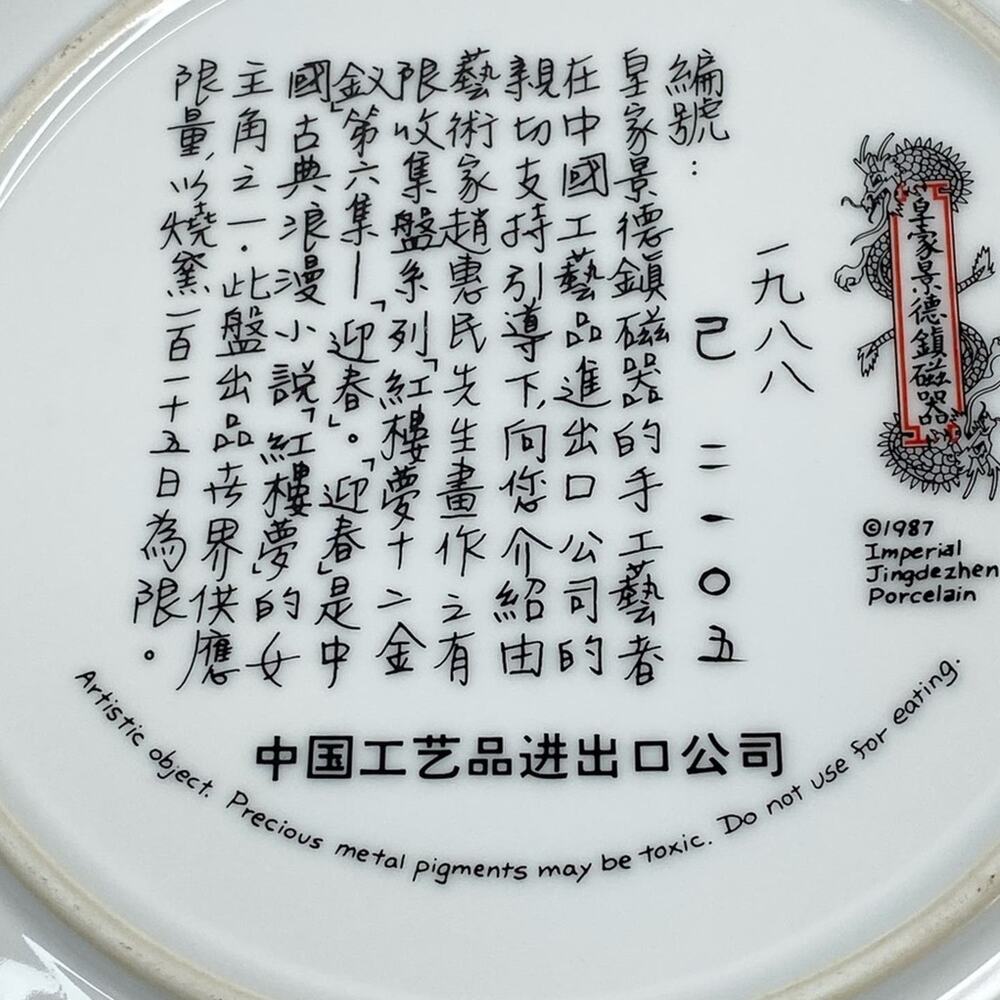 編號：
一九八八
己 二一〇五
皇家景德鎮磁器的手工藝者
在中國工藝品進出口公司的
親切支持引導下，向您介紹由
藝術家趙惠民先生畫作之有
限收集盤系列「紅樓夢十二金
釵」第六集—「迎春」。「迎春」是中
國古典浪漫小說「紅樓夢」的女
主角之一．此盤出品世界供應
限量，以燒窯一百一十五日為限。
皇家景德鎮磁器
©1987
Imperial
Jingdezhen
Porcelain
中国工艺品进出口公司
Artistic object. Precious metal pigments may be toxic. Do not use for eating.